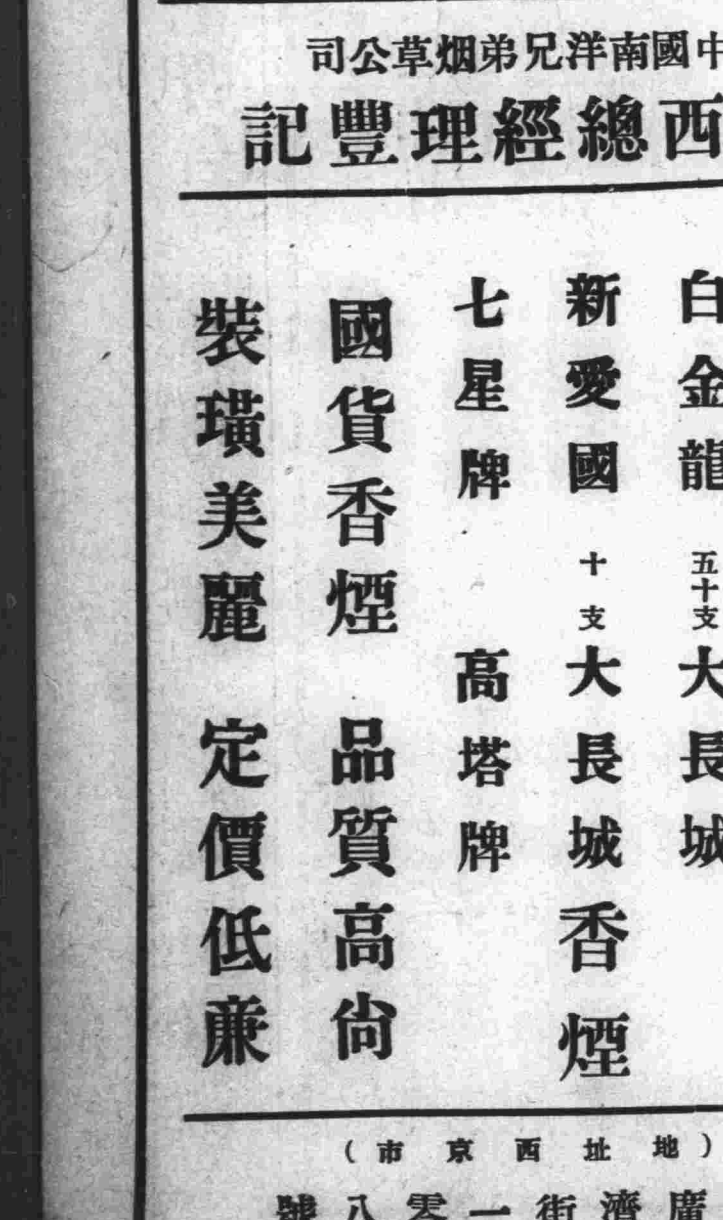 中國南洋兄弟烟草公司
西總經理豐記
白金龍 五十支 大長城
新愛國 十支 大長城香煙
七星牌 高塔牌
國貨香煙 品質高尙
裝璜美麗 定價低廉
(地址西京市)
廣濟街一零八號